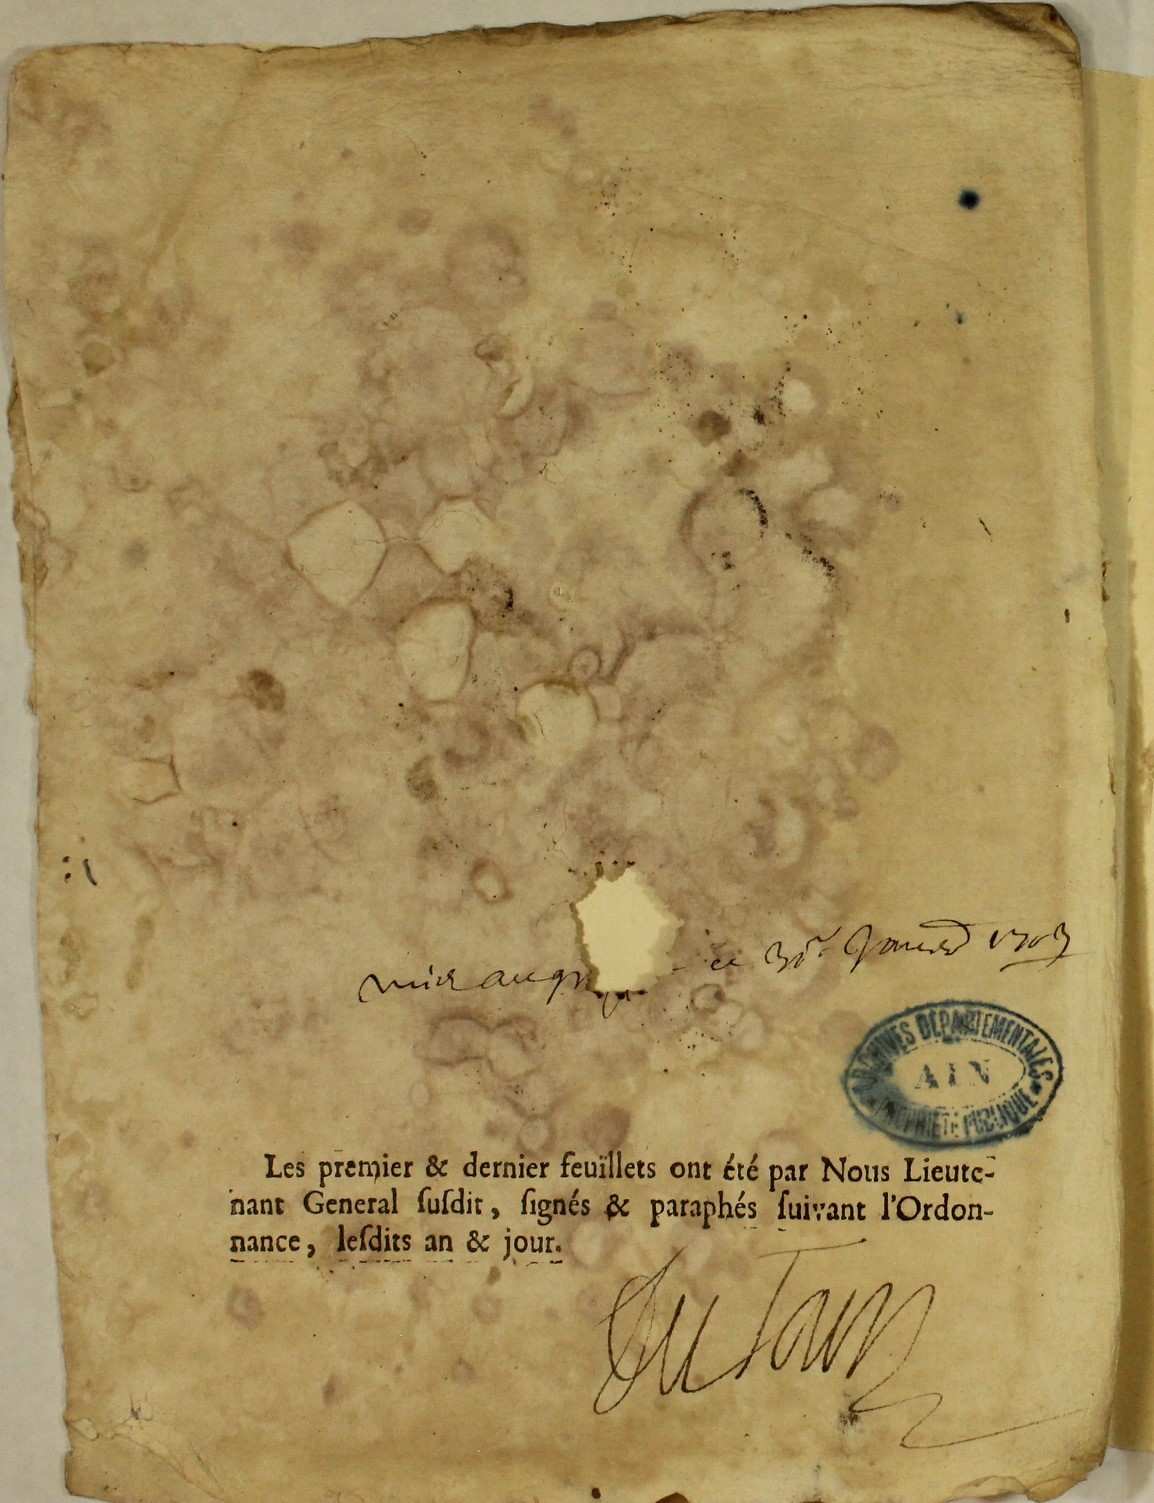 mis au gr ce 31e Janvier 1703
ARCHIVES DÉPARTEMENTALES
AIN
PROPRIÉTÉ PUBLIQUE
Les premier & dernier feuillets ont été par Nous Lieute-
nant General ſuſdit, ſignés & paraphés ſuivant l'Ordon-
nance, leſdits an & jour.